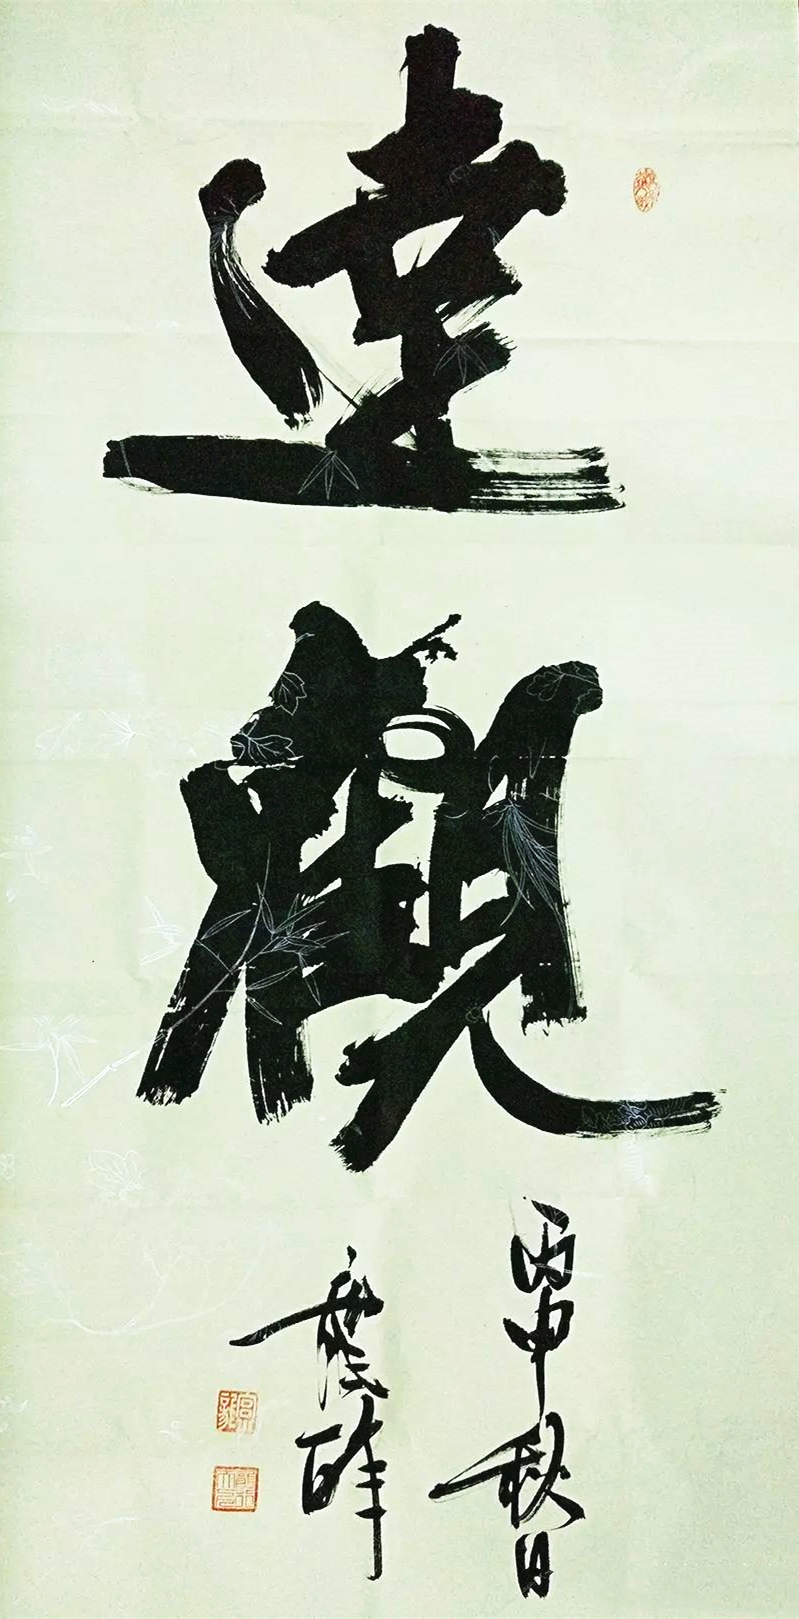 達觀
丙申秋日